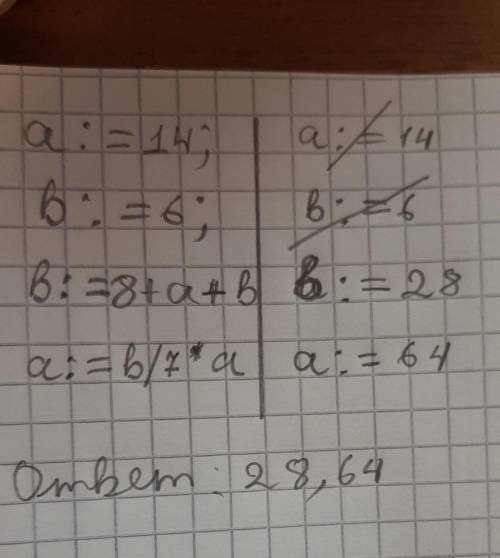 a := 14; a := 14
b := 6; b := 6
b := 8 + a + b b := 28
a := b/7 * a a := 64
Ответ: 28, 64